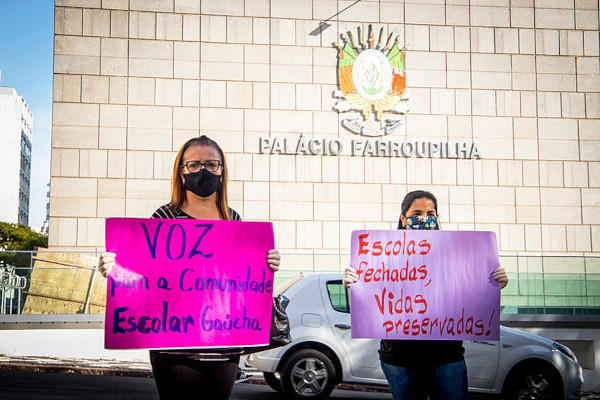 PALÁCIO FARROUPILHA
VOZ
para a Comunidade
Escolar Gaúcha
Escolas
fechadas,
Vidas
preservadas!